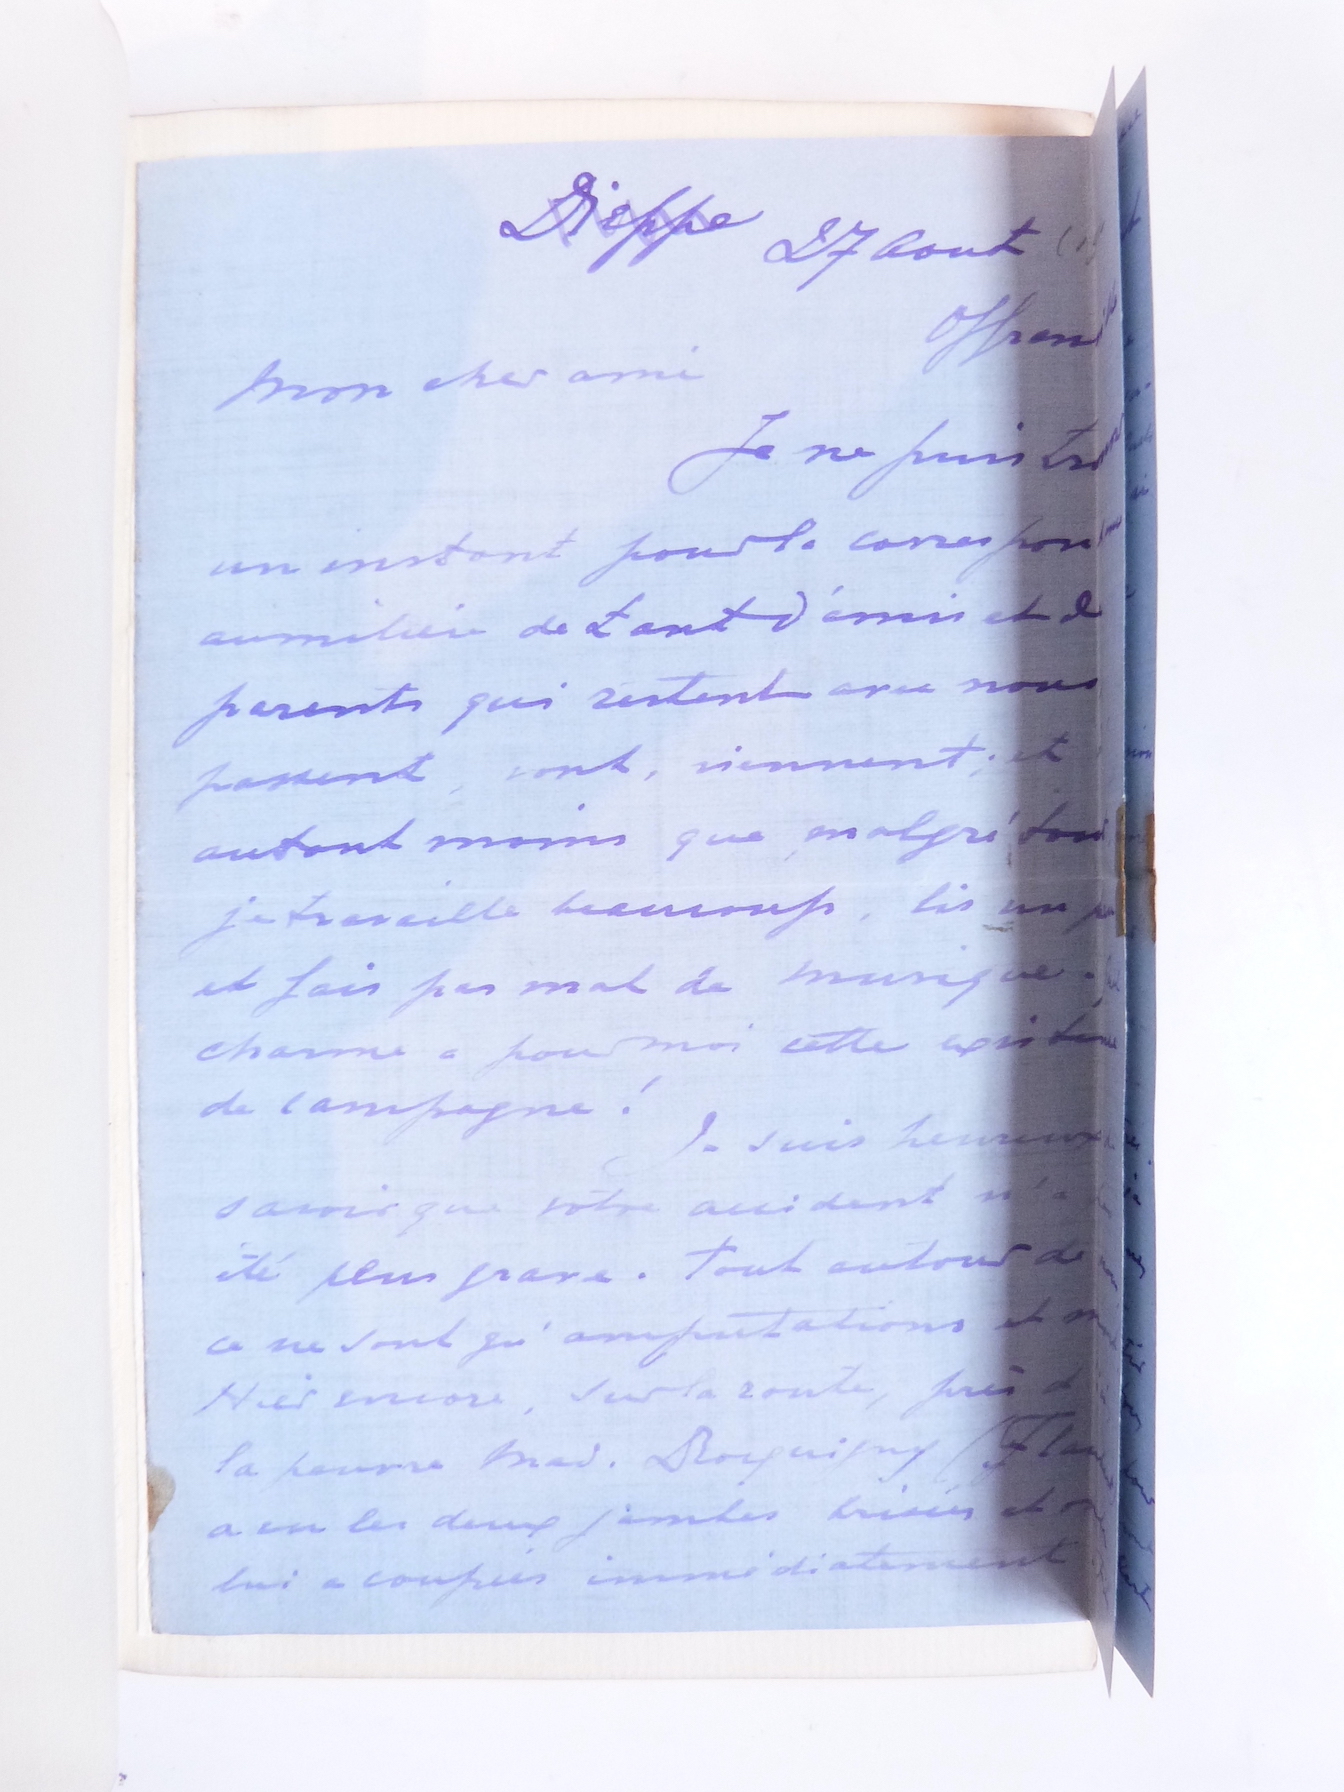 Dieppe 27 Aout (19
Offranv
Mon cher ami
Je ne puis tro
un instant pour la correspon
au milieu de tant d'amis et d
parents qui restent avec nous
passent, vont, viennent; et
autant moins que malgré tout
je travaille beaucoup, lis un p
et fais pas mal de musique.
charme a pour moi cette existen
de campagne!
Je suis heureux
savoir que votre accident n'a
été plus grave. Tout autour de
ce ne sont qu'amputations et m
Hier encore, sur la route, près d
la pauvre Mad. Rocquigny (
a eu les deux jambes brisées et on
lui a coupées immédiatement